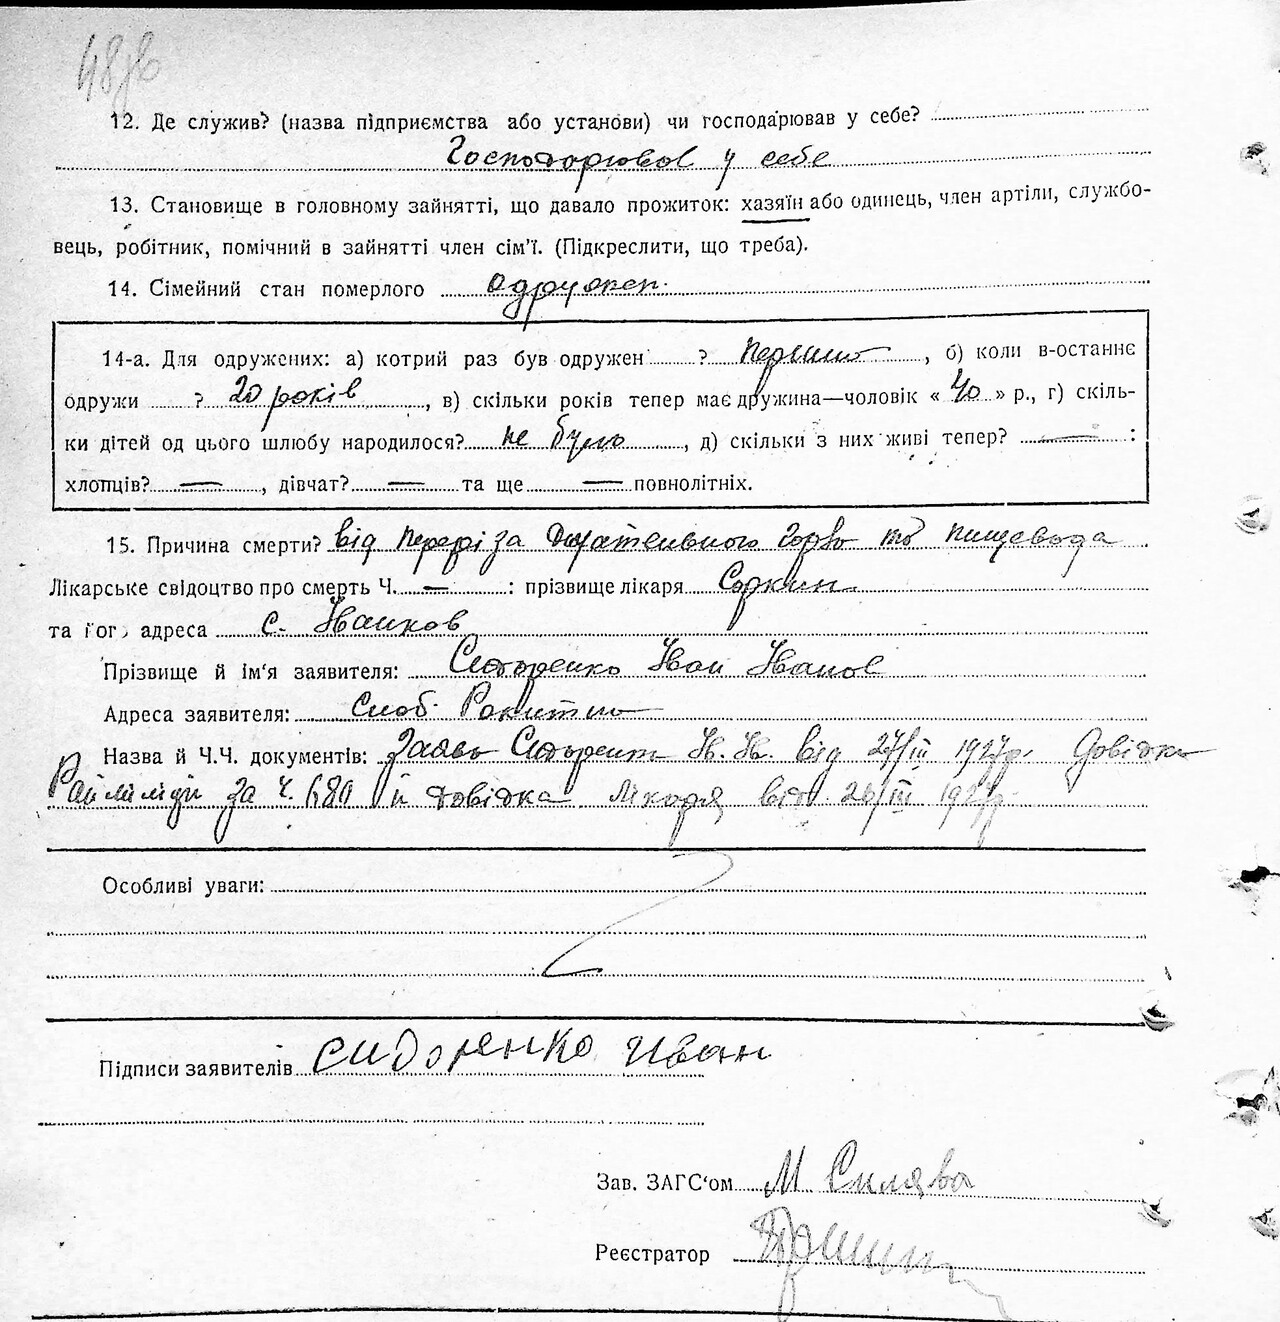 48зв
12. Де служив? (назва підприємства або установи) чи господарював у себе?
Господарював у себе
13. Становище в головному зайнятті, що давало прожиток: хазяїн або одинець, член артіли, службо-
вець, робітник, помічний в зайнятті член сім'ї. (Підкреслити, що треба).
14. Сімейний стан померлого одружен.
14-а. Для одружених: а) котрий раз був одружен ? перший, б) коли в-останнє
одружи ? 20 років, в) скільки років тепер має дружина—чоловік « 40 » р., г) скіль-
ки дітей од цього шлюбу народилося? не було, д) скільки з них живі тепер? — :
хлопців? —, дівчат? — та ще — повнолітніх.
15. Причина смерти? від переріза дихательного горла та пищевода
Лікарське свідоцтво про смерть Ч. — : прізвище лікаря Соркин
та його адреса с. Іванков
Прізвище й ім'я заявителя: Сидоренко Іван Іванов
Адреса заявителя: Слоб. Ракитна
Назва й Ч.Ч. документів: Заява Сидоренка Ів. Ів. від 27/III 1927р. Довідка
Райміліції за Ч. 680 й довідка лікаря від 26/III 1927р.
Особливі уваги:
Підписи заявителів Сидоренко Иван
Зав. ЗАГС'ом М
Реєстратор